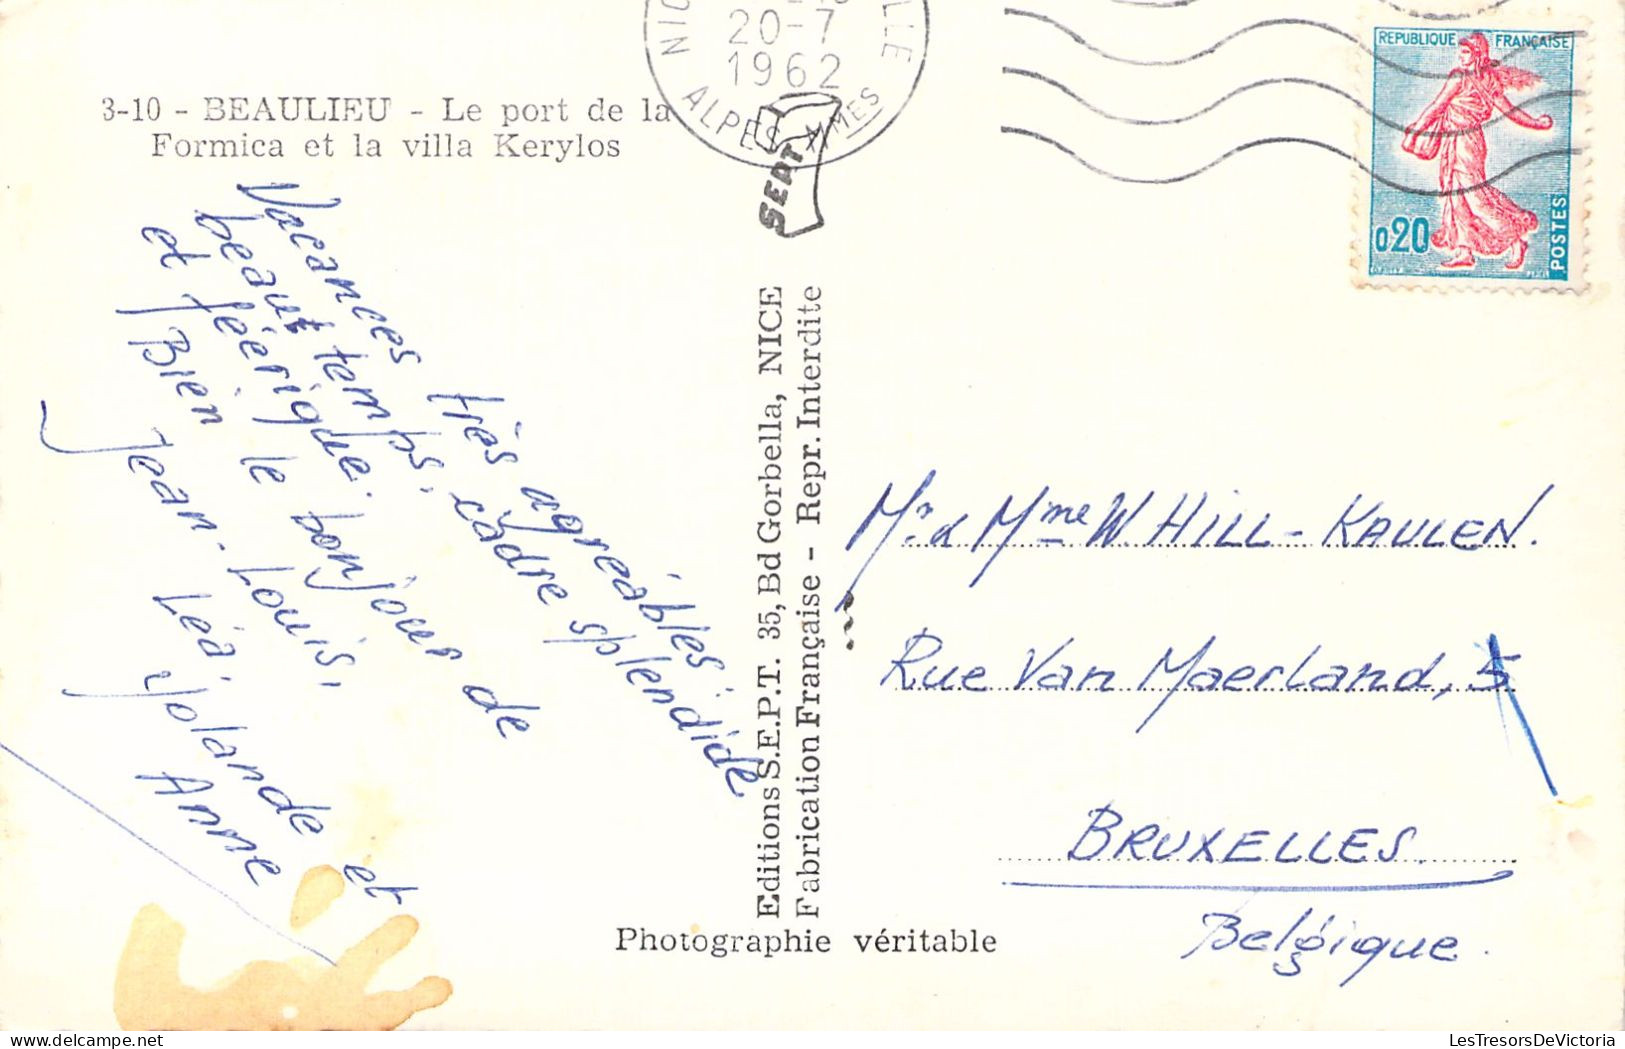 3-10 - BEAULIEU - Le port de la
Formica et la villa Kerylos
Vacances très agréables.
beau temps. cadre splendide
et féérique.
Bien le bonjour de
Jean-Louis,
Léa, Yolande et
Anne
Editions S.E.P.T. 35, Bd Gorbella, NICE
Fabrication Française - Repr. Interdite
SEPT
Photographie véritable
20-7
1962
ALPES MMES
REPUBLIQUE FRANÇAISE
0,20
POSTES
Mr. & Mme W. HILL-KAULEN.
Rue Van Maerland, 5
BRUXELLES.
Belgique.
LesTresorsDeVictoria